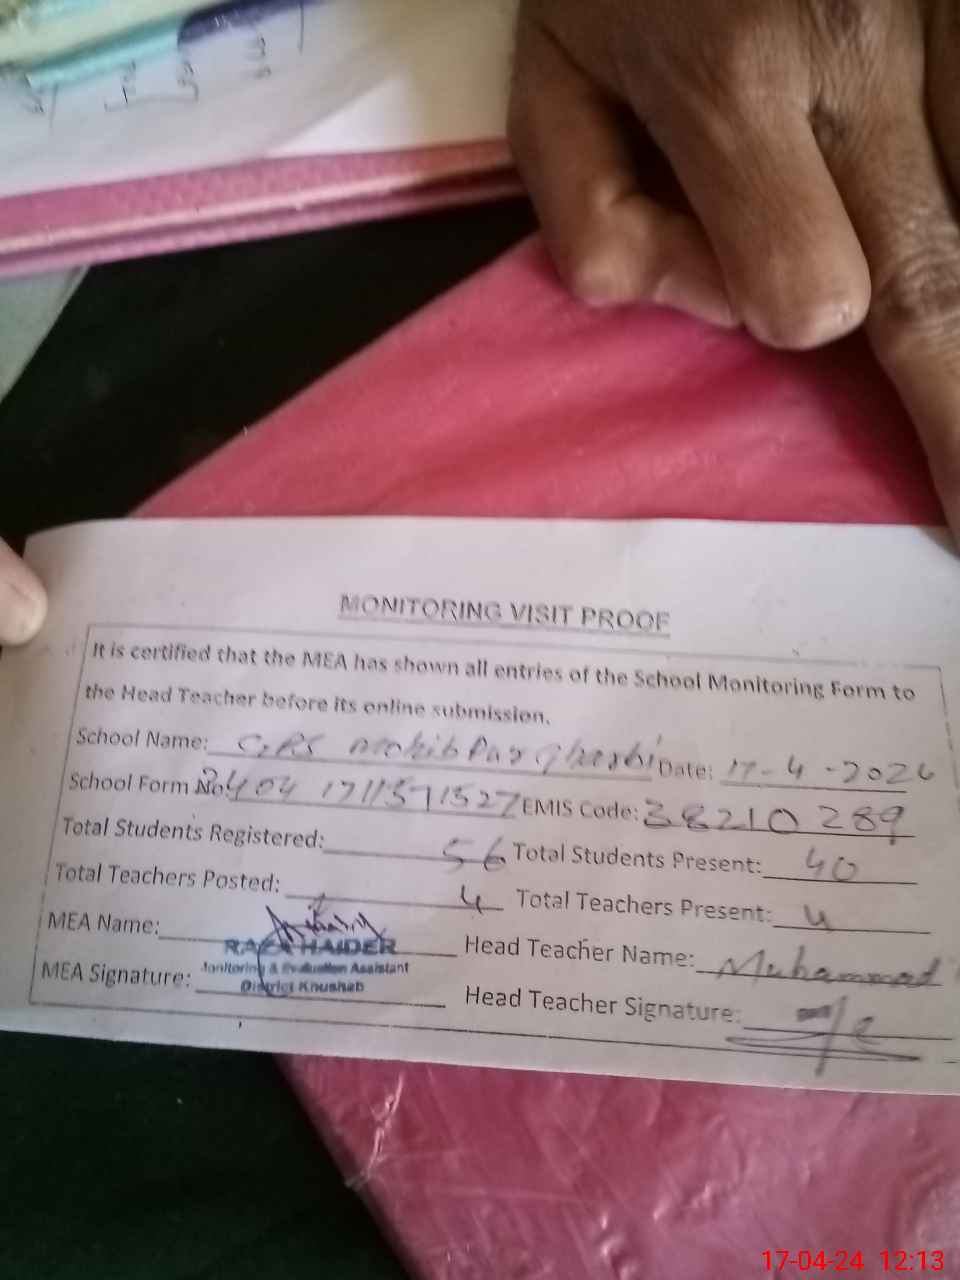 MONITORING VISIT PROOF
It is certified that the MEA has shown all entries of the School Monitoring Form to
the Head Teacher before its online submission.
School Name: Date: 17-4-2024
School Form No: 2404 1711571527 EMIS Code: 38210289
Total Students Registered: 56 Total Students Present: 40
Total Teachers Posted: 4 Total Teachers Present: 4
MEA Name: RAZA HAIDER Head Teacher Name: Muhammad
Monitoring & Evaluation Assistant
MEA Signature: District Khushab Head Teacher Signature:
17-04-24 12:13